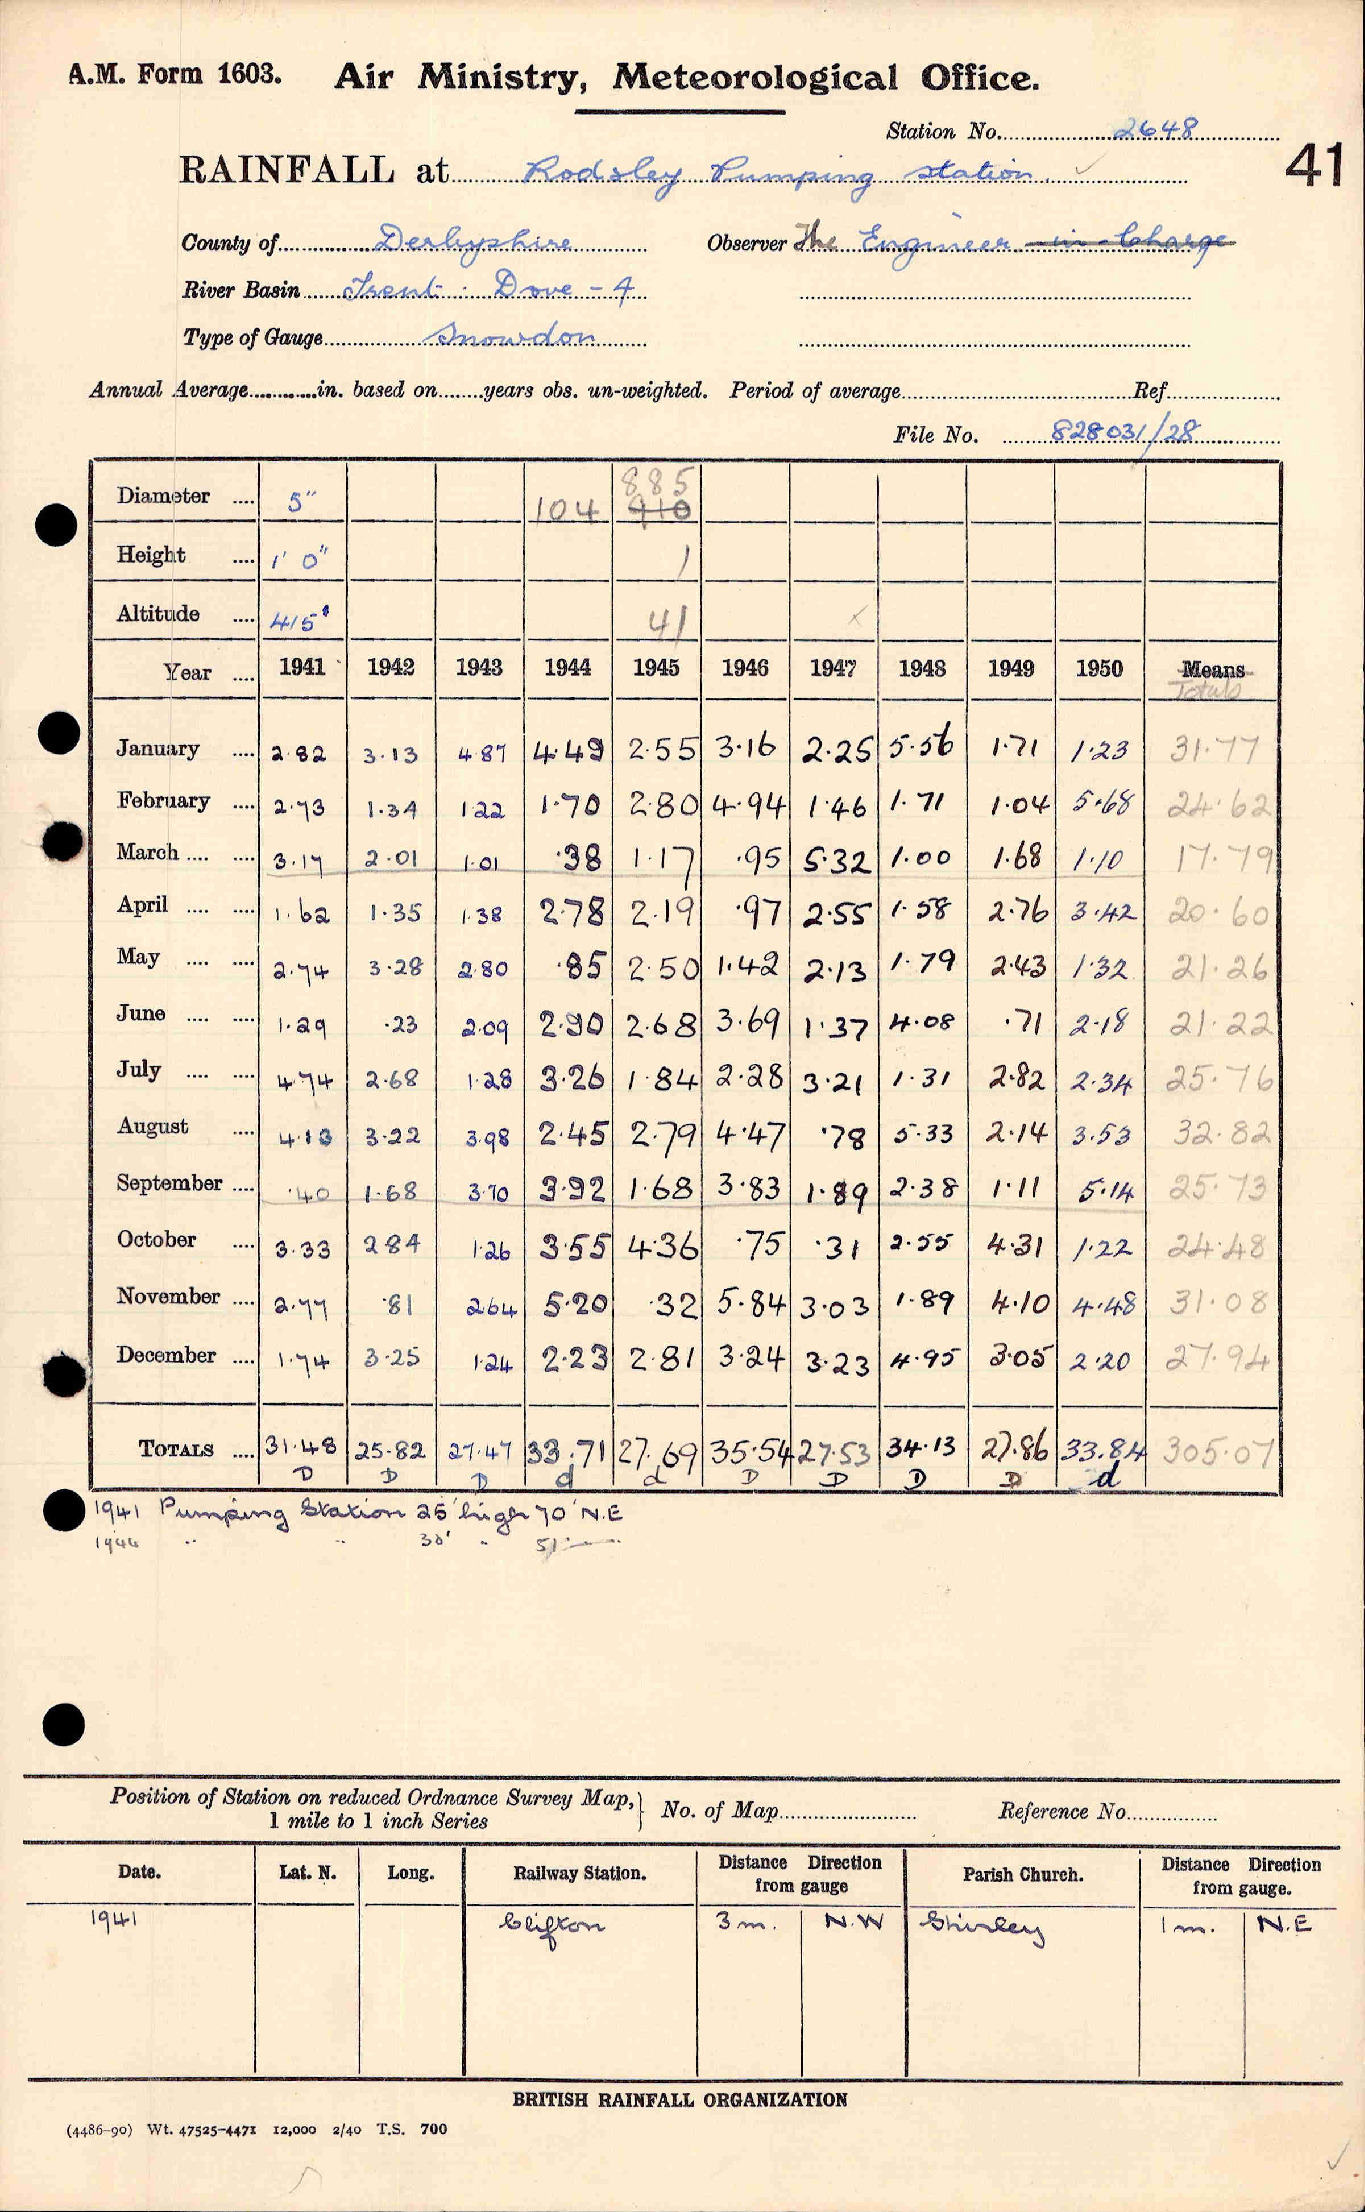 A.M. Form 1603. Air Ministry, Meteorological Office.
Station No. 2648
41
RAINFALL at Rodsley Pumping Station
County of Derbyshire Observer The Engineer in-Charge
River Basin Trent : Dove - 4
Type of Gauge Snowdon
Annual Average in. based on years obs. un-weighted. Period of average Ref.
File No. 828031/28
885
Diameter 5" 104 910
Height 1' 0" 1
Altitude 415' 41
Year 1941 1942 1943 1944 1945 1946 1947 1948 1949 1950 Means
Totals
January 2.82 3.13 4.87 4.49 2.55 3.16 2.25 5.56 1.71 1.23 31.77
February 2.73 1.34 1.22 1.70 2.80 4.94 1.46 1.71 1.04 5.68 24.62
March 3.17 2.01 1.01 .38 1.17 .95 5.32 1.00 1.68 1.10 17.79
April 1.62 1.35 1.38 2.78 2.19 .97 2.55 1.58 2.76 3.42 20.60
May 2.74 3.28 2.80 .85 2.50 1.42 2.13 1.79 2.43 1.32 21.26
June 1.29 .23 2.09 2.90 2.68 3.69 1.37 4.08 .71 2.18 21.22
July 4.74 2.68 1.28 3.26 1.84 2.28 3.21 1.31 2.82 2.34 25.76
August 4.13 3.22 3.98 2.45 2.79 4.47 .78 5.33 2.14 3.53 32.82
September .40 1.68 3.70 3.92 1.68 3.83 1.89 2.38 1.11 5.14 25.73
October 3.33 2.84 1.26 3.55 4.36 .75 .31 2.55 4.31 1.22 24.48
November 2.77 .81 2.64 5.20 .32 5.84 3.03 1.89 4.10 4.48 31.08
December 1.74 3.25 1.24 2.23 2.81 3.24 3.23 4.95 3.05 2.20 27.94
TOTALS 31.48 25.82 27.47 33.71 27.69 35.54 27.53 34.13 27.86 33.84 305.07
D D D d d D D D D d
1941 Pumping Station 25' high 70' N.E
1944 " " 30' " 51'
Position of Station on reduced Ordnance Survey Map, } No. of Map Reference No.
1 mile to 1 inch Series
Date. Lat. N. Long. Railway Station. Distance Direction from gauge Parish Church. Distance Direction from gauge.
1941 Clifton 3 m. N.W Shirley 1 m. N.E
BRITISH RAINFALL ORGANIZATION
(4486-90) Wt. 47525-4471 12,000 2/40 T.S. 700